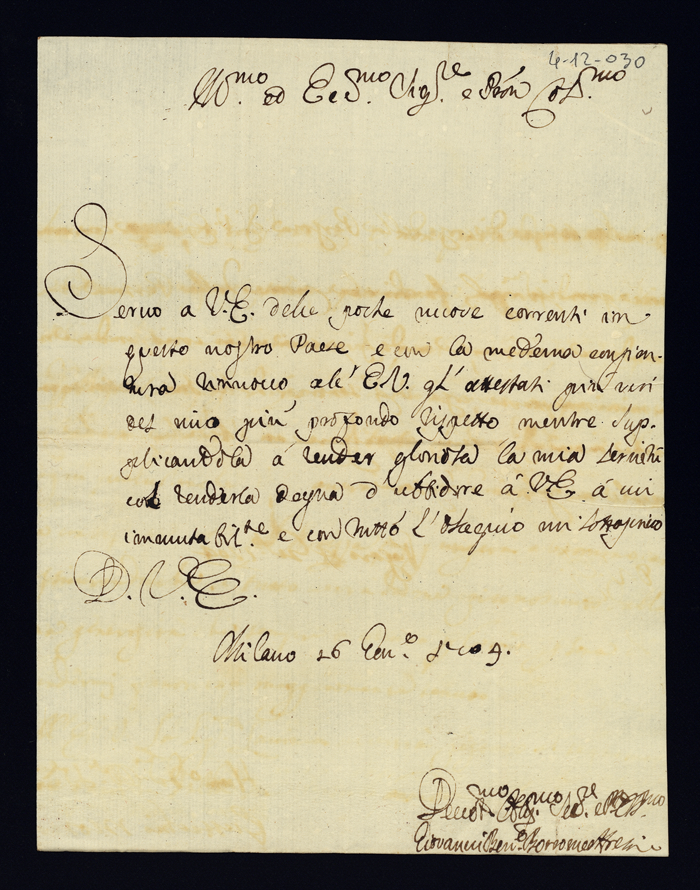 4-12-030
Ill.mo ed Ecc.mo Sig.re e Prôn Col.mo
Servo a V.E. delle poche nuove correnti in
questo nostro Paese e con la medema congion-
tura rinnovo all' E.V. gl' attestati più vivi
del mio più profondo rispetto mentre Sup-
plicandola à render gloriosa la mia servitù
col renderla degna d' ubbidire à V.E. à mi
immutabil.te e con tutto l' Osequio mi
D. V. E.
Milano 16 Gen.o 1709.
Devot.mo Oblig.mo Ser.re
Giovanni Ben.o Borromeo Arese